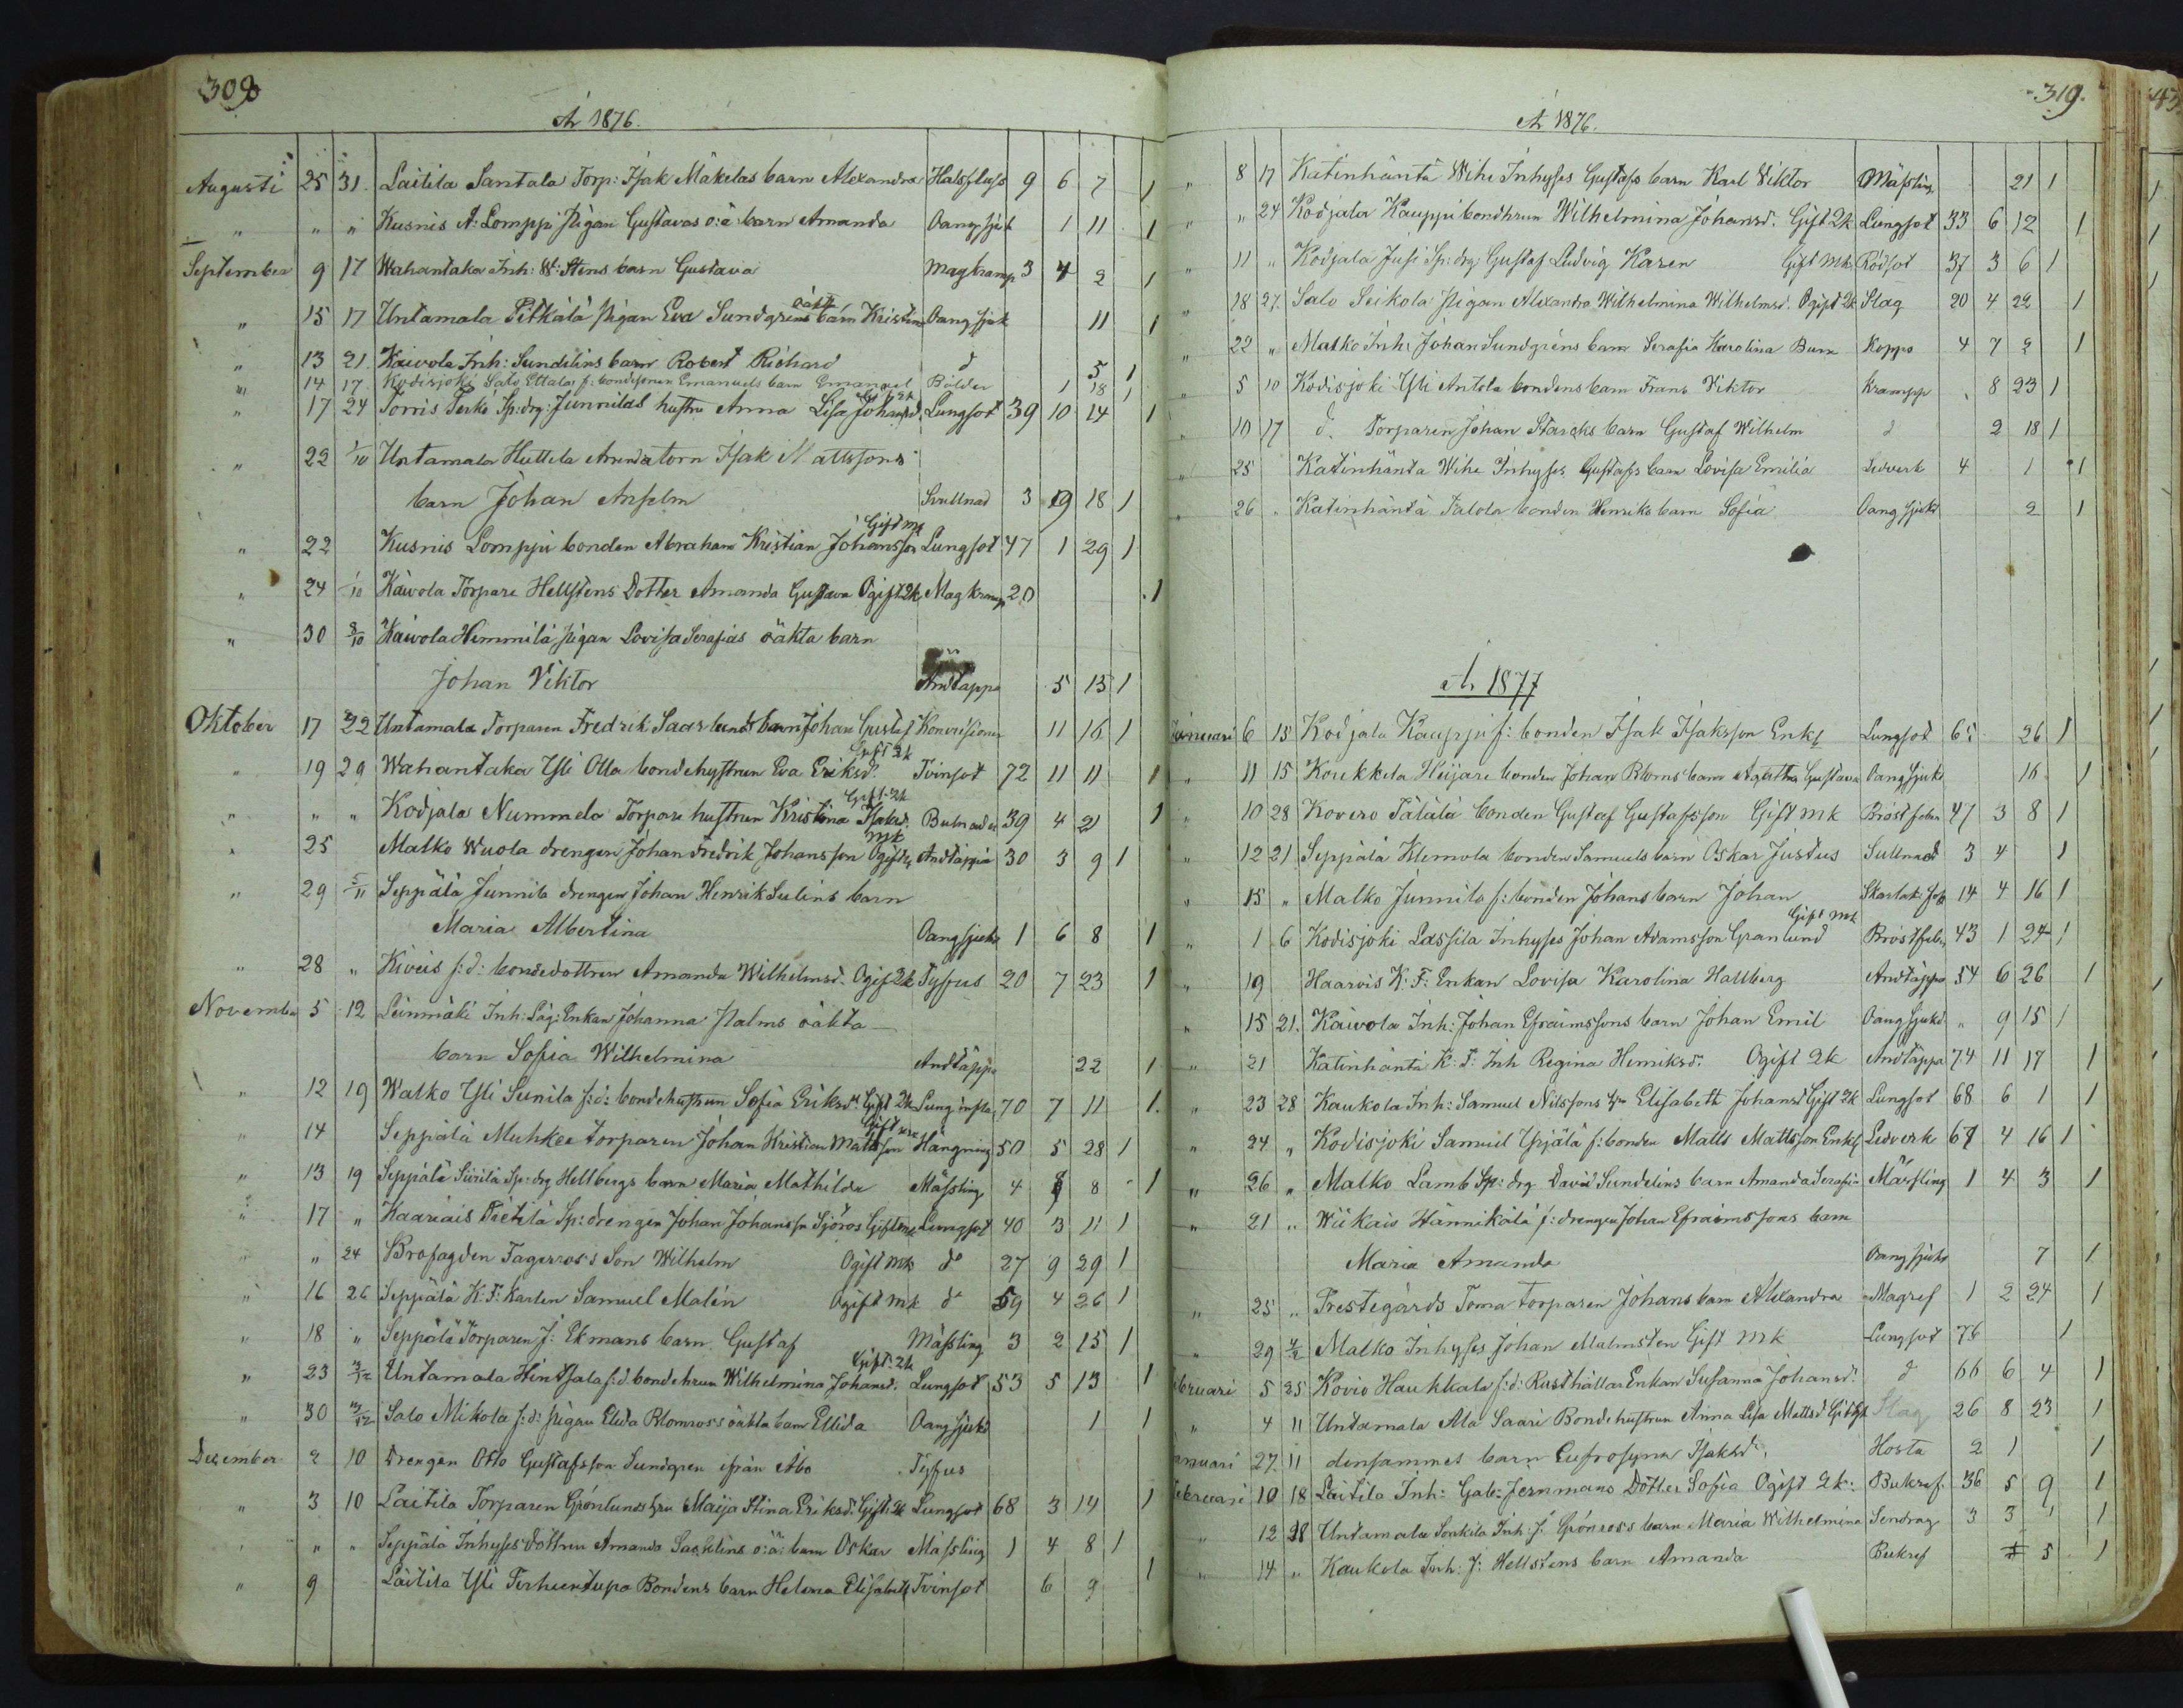 308
År 1876.
Augusti 25 31. Laitila Santala Torp: Isak Mäkeläs barn Alexandra Halsflus 9 6 7 1
" " " Kusnis A: Lomppi pigan Gustavas o:ä barn Amanda Oang.sjuk 1 11 1
September 9 17 Wahantaka Inh: W: Stens barn Gustava Magkramp 3 4 2 1
" 15 17 Untamala Pitkälä pigan Eva Sundgrens oäkta barn Kristina Oang sjuk 11 1
" 13 21. Kaivola Inh: Sundelins barn Robert Richard d 5 1
" 14 17. Kodisjoki Salo Ettala f: bondsonen Emanuels barn Emanuel Bölder 1 18 1
" 17 24 Torris Terko Sp: drg: Junnilas hustru Anna Lisa Johansd. Gift 2k Lungsot 39 10 14 1
" 22 1/10 Untamala Huttela Arendatorn Isak Mattssons
barn Johan Anselm Svullnad 3 9 18 1
" 22 Kusnis Lomppi bonden Abraham Kristian Johansson Gift mk Lungsot 47 1 29 1
" 24 1/10 Kaivola Torpare Hellstens Dotter Amanda Gustava Ogift 2k Magkramp 20 1
" 30 8/10 Kaivola Himmilä pigan Lovisa Serafias oäkta barn
Johan Viktor Andtäppa 5 15 1
Oktober 17 22 Untamala Torparen Fredrik Saarlunds barn Johan Gustaf Konvulsioner 11 16 1
" 19 29 Wahantaka Yli Olla bondehustrun Eva Eriksd. Gift 2k Tvinsot 72 11 11 1
" " " Kodjala Nummela Torpare hustrun Kristina Isaksd. Gift 2k 39 4 21 1
" 25 Malko Wuola drengen Johan Fredrik Johansson Ogift mk Andtäppa 30 3 9 1
" 29 5/11 Seppälä Junnila drengen Johan Henrik Sulins barn
Maria Albertina Oang sjuka 1 6 8 1
" 28 " Kiveis f: d: bondedottren Amanda Wilhelmsd. Ogift 2k Tyfus 20 7 23 1
November 5 12 Leinmäki Inh: Enkan Johanna Palms oäkta
barn Sofia Wilhelmina Andtäppa 22 1
" 12 19 Malko Yli Sunila f: d: bondehustrun Sofia Eriksd. Gift 2k Lung infla 70 7 11 1.
" 14 Seppälä Muhkea torparen Johan Kristian Mattsson Gift mk Hängning 50 5 28 1
" 13 19 Seppälä Siirilä Sp: drg Hellbergs barn Maria Mathilda Mässling 4 8 8 1
" 17 " Kaariais Pietilä Sp: drengen Johan Johansson Sjöros Gift mk Lungsot 40 3 11 1
" " 24 Brofagden Fagerros's Son Wilhelm Ogift mk do 27 9 29 1
" 16 26 Seppälä K: F: Karlen Samuel Malén Ogift mk do 59 4 26 1
" 18 " Seppälä Torparen J: Ekmans barn Gustaf Mässling 3 2 15 1
" 23 3/12 Untamala Hintsala f: d. bondehrun Wilhelmina Johansd. Gift. 2k Lungsot 53 5 13 1
" 30 3/12 Salo Mikola f: d: pigan Elida Blomros's oäkta barn Ellida Oang sjuka 1 1
December 2 10 Drengen Otto Gustafsson Sundgren ifrån Åbo Tyfus
" 3 10 Laitila Torparen Grönlunds hru Maija Stina Eriksd. Gift 2k Lungsot 68 3 14 1
" " " Seppälä Inhyses dottren Amanda Sacklins o: ä: barn Oskar Mässling 1 4 8 1
" 9 Laitila Yli Torhuntupa Bondens barn Helena Elisabeth Tvinsot 6 9 1
319.
År 1876.
" 8 17 Katinhäntä Wihi Inhyses Gustafs barn Karl Viktor Mässling 21 1
" " 24 Kodjala Kauppi bondhrun Wilhelmina Johansd. Gift 2k Lungsot 33 6 12 1
" 11 " Kodjala Jusi Sp: drg: Gustaf Ludvig Karen Gift mk Rödsot 37 3 6 1
" 18 27. Salo Seikola pigan Alexandra Wilhelmina Wilhelmsd. Ogift 2k Slag 20 4 22 1
" 22 " Malko Inh: Johan Sundgrens barn Serafia Karolina Koppo 4 7 2 1
" 5 10 Kodisjoki Yli Antola bondens barn Frans Viktor Krampp 8 23 1
" 10 17 d. Torparen Johan Starcks barn Gustaf Wilhelm d 2 18 1
" 25 Katinhäntä Wihi Inhyses Gustafs barn Lovisa Emilia Ledverk 4 1 1
" 26 " Katinhäntä Talola bonden Henriks barn Sofia Oang sjuka 2 1
År 1877
Januari 6 15 Kodjala Kauppi f: bonden Isak Isaksson Enkl Lungsot 65 26 1
" 11 15 Koukkela Heijari bonden Johan Bloms barn Agatha Gustava Oang sjuka 16 1
" 10 28 Kovero Pälälä bonden Gustaf Gustafsson Gift mk Bröstfeber 47 3 8 1
" 12 21 Seppälä Klemola bonden Samuels barn Oskar Justus Sullnad 3 4 1
" 15 " Malko Junnila f: bonden Johans barn Johan Skarlak feb 14 4 16 1
" 1 6 Kodisjoki Lassila Inhyses Johan Adamsson Granlund Gift mk Bröstfeber 43 1 24 1
" 19 Haarvis K: F: Enkan Lovisa Karolina Hallberg Andtäppa 54 6 26 1
" 15 21. Kaivola Inh: Johan Efraimssons barn Johan Emil Oang sjukd. " 9 15 1
" 21 Katinhäntä K: F: Inh Regina Henriksd. Ogift 2k Andtäppa 74 11 17 1
" 23 28 Kaukola Inh: Samuel Nilssons hru Elisabeth Johansd Gift 2k Lungsot 68 6 1 1
" 24 " Kodisjoki Samuel Yrjälä f: bonden Matts Mattsson Enkl Ledverk 67 4 16 1
" 26 " Malko Lamb Sp: drg David Sundelins barn Amanda Serafia Mässling 1 4 3 1
" 21 " Wiikais Hännikälä f: drengen Johan Efraimssons barn
Maria Amanda Oang sjuka 7 1
" 25 " Prestegårds Toma torparen Johans barn Alexandra Magref 1 2 24 1
" 29 4/2 Malko Inhyses Johan Malmsten Gift mk Lungsot 76 1
Februari 5 25 Kovio Haukkala f: d: Rusthållar Enkan Susanna Johansd. d 66 6 4 1
" 4 11 Untamala Ala Saari Bondehustrun Anna Lisa Mattsd Gift Slag 26 8 23 1
Januari 27. 11 densammes barn Eufrosyna Isaksd. Hosta 2 1 1
Februari 10 18 Laitila Inh: Gab: Jernmans Dotter Sofia Ogift 2k: Bukref. 36 5 9 1
" 12 28 Untamala Sonkila Inh: J: Grönros's barn Maria Wilhelmina Sendrag 3 3 1 1
" 14 " Kaukola Inh: J: Hellstens barn Amanda Bukref 5 1